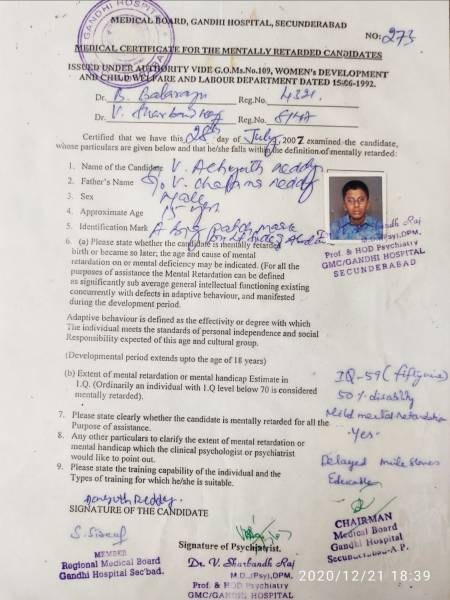 GANDHI HOSPITAL
MEDICAL BOARD, GANDHI HOSPITAL, SECUNDERABAD
NO: 273
MEDICAL CERTIFICATE FOR THE MENTALLY RETARDED CANDIDATES
ISSUED UNDER AUTHORITY VIDE G.O.Ms.No.109, WOMEN'S DEVELOPMENT
AND CHILD WELFARE AND LABOUR DEPARTMENT DATED 15-06-1992.
Dr. B. Balaraju Reg.No.
Dr. V. Sharbandh Raj Reg.No.
Certified that we have this 28th day of July, 2007 examined the candidate,
whose particulars are given below and that he/she falls within the definition of mentally retarded:
1. Name of the Candidate V. Achyuth reddy
2. Father's Name V. reddy
3. Sex Male
4. Approximate Age 15 yrs
5. Identification Mark A
6. (a) Please state whether the candidate is mentally retarded
birth or became so later; the age and cause of mental
retardation on or mental deficiency may be indicated. (For all the
purposes of assistance the Mental Retardation can be defined
as significantly sub average general intellectual functioning existing
concurrently with defects in adaptive behaviour, and manifested
during the development period.
Sharbandh Raj
(Psy),DPM,
Prof. & HOD Psychiatry
GMC/GANDHI HOSPITAL
SECUNDERABAD
Adaptive behaviour is defined as the effectivity or degree with which
The individual meets the standards of personal independence and social
Responsibility expected of this age and cultural group.
(Developmental period extends upto the age of 18 years)
(b) Extent of mental retardation or mental handicap Estimate in
1.Q. (Ordinarily an individual with 1.Q level below 70 is considered
mentally retarded).
IQ-59 (fifty nine)
50% disability
Mild mental retardation
7. Please state clearly whether the candidate is mentally retarded for all the
Purpose of assistance.
-Yes-
8. Any other particulars to clarify the extent of mental retardation or
mental handicap which the clinical psychologist or psychiatrist
would like to point out.
Delayed mile stones
9. Please state the training capability of the individual and the
Types of training for which he/she is suitable.
Education
Achyuth Reddy
SIGNATURE OF THE CANDIDATE
CHAIRMAN
Medical Board
Gandhi Hospital
Secunderabad-A.P.
MEMBER
Regional Medical Board
Gandhi Hospital Sec'bad.
Signature of Psychiatrist.
Dr. V. Sharbandh Raj
M.D.,(Psy),DPM,
Prof. & HOD Psychiatry
GMC/GANDHI HOSPITAL
2020/12/21 18:39